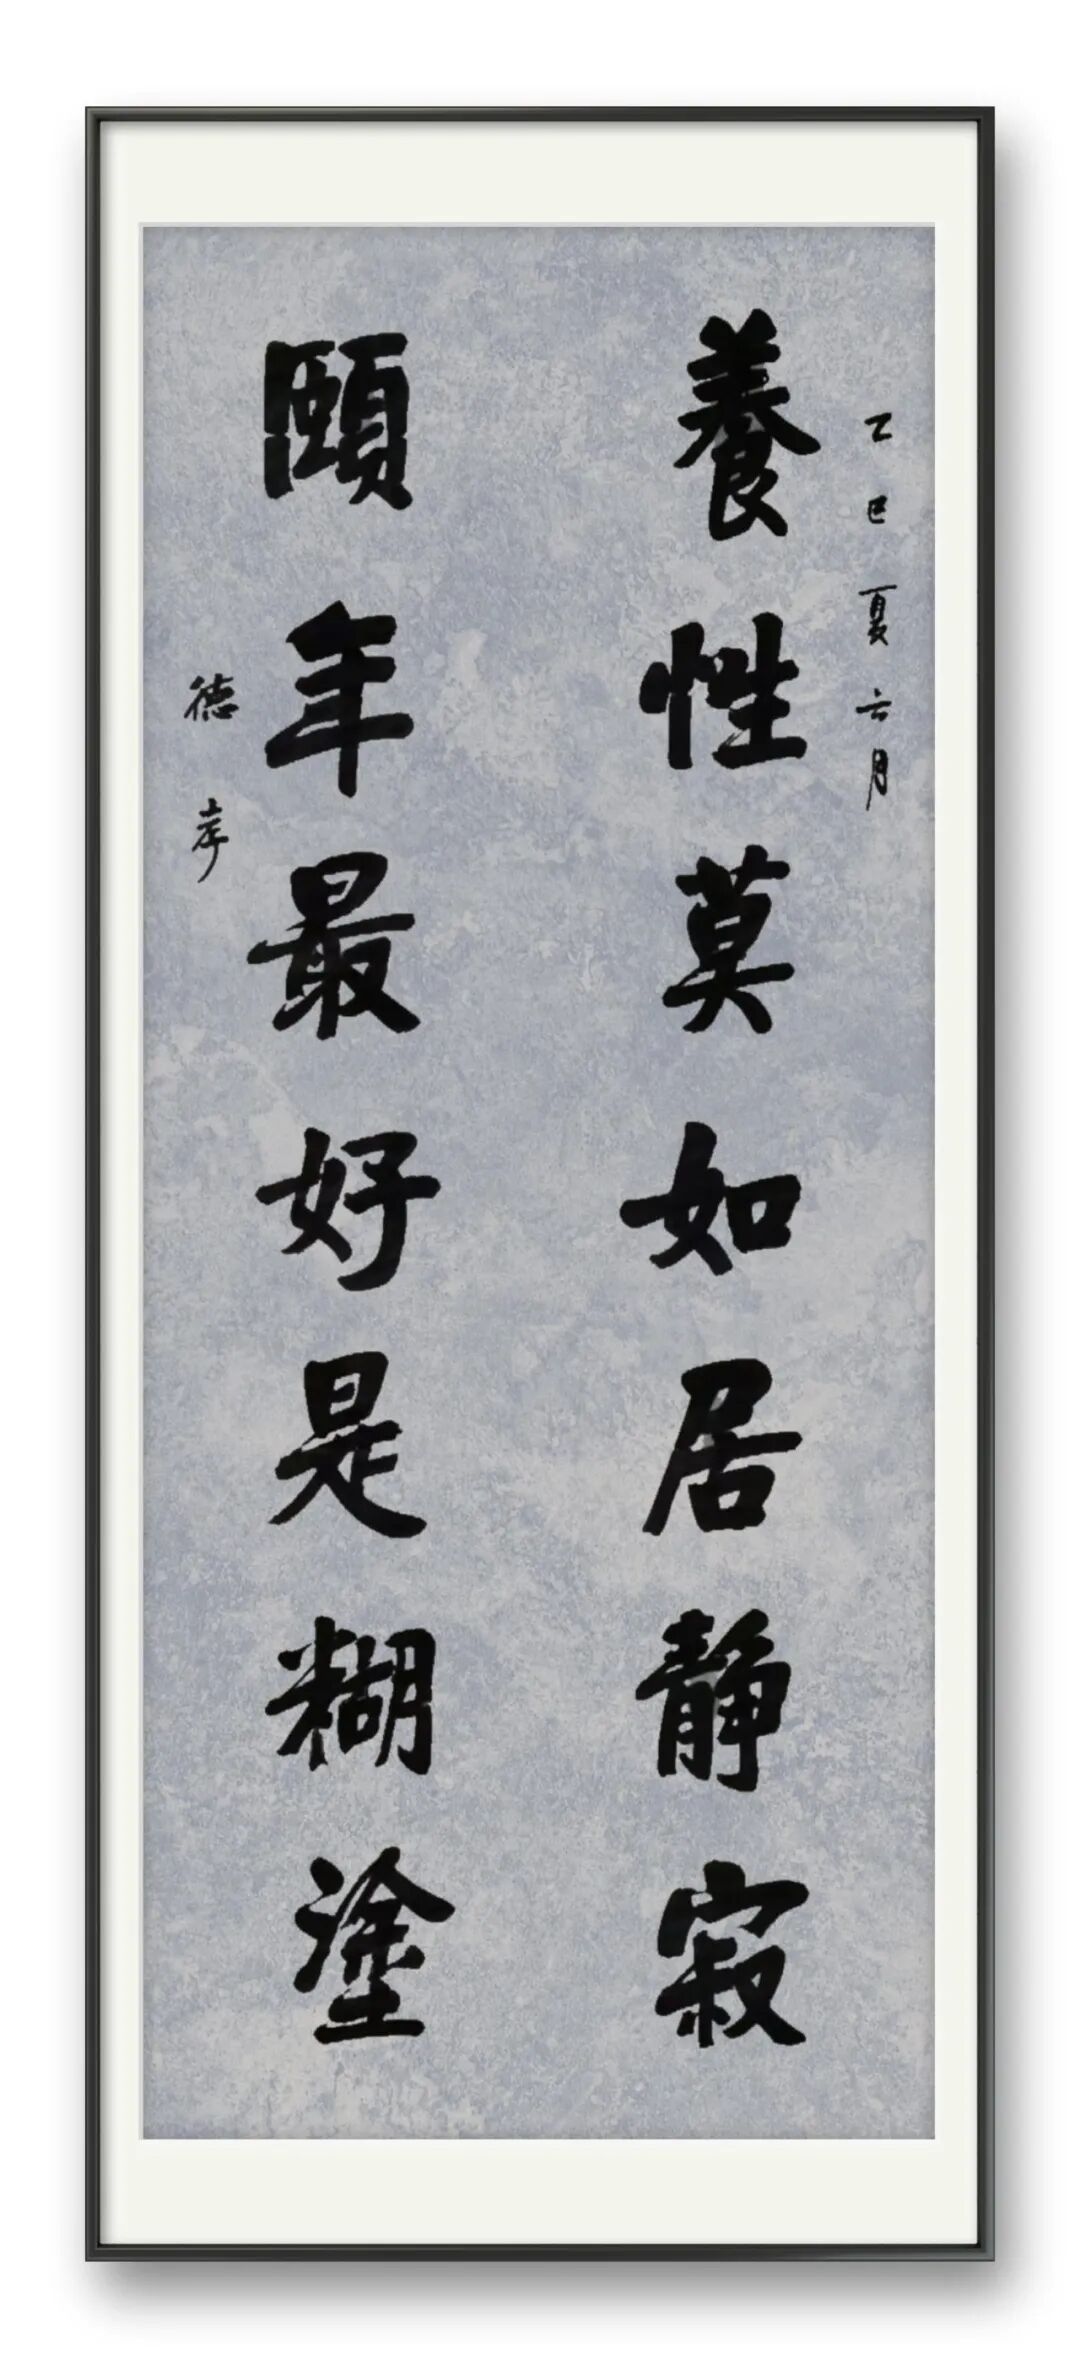 乙巳夏六月
養性莫如居靜寂
頤年最好是糊塗
德孝